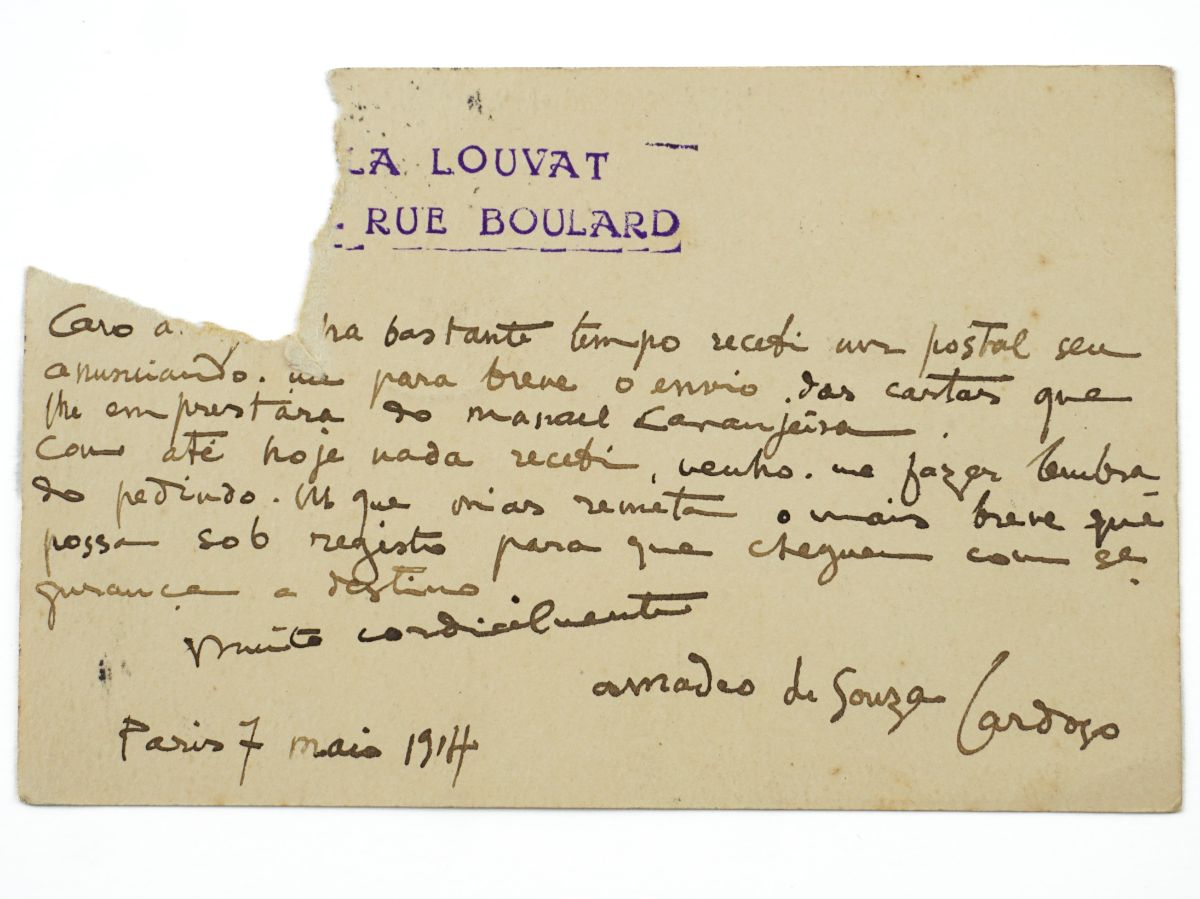 LA LOUVAT
RUE BOULARD
Caro a ha bastante tempo recebi um postal seu
anunciando. me para breve o envio das cartas que
lhe emprestara do manuel Laranjeira.
Como até hoje nada recebi, venho. me fazer lembra
do pedindo. lh que m'as remeta o mais breve que
possa sob registo para que cheguem com se
gurança a destino
muito cordialmente
amadeo de Souza Cardozo
Paris 7 maio 1914